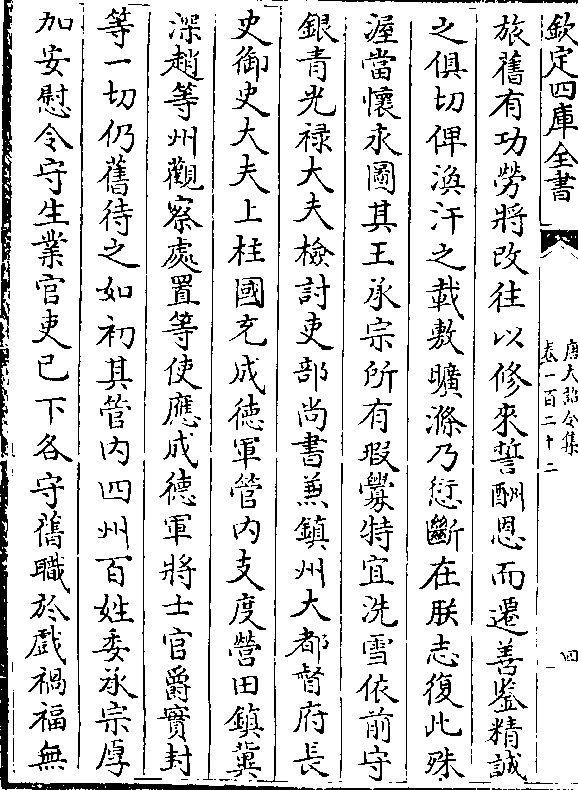 欽定四庫全書
唐大詔令集
卷一百二十二
四
旅舊有功勞將改往以修來誓酬恩而遷善鑒精誠
之俱切俾渙汗之載敷曠滌乃愆斷在朕志復此殊
渥當懷永圖其王承宗所有瑕釁特宜洗雪依前守
銀青光祿大夫檢討吏部尚書兼鎮州大都督府長
史御史大夫上柱國充成徳軍管内支度營田鎮冀
深趙等州觀察處置等使應成德軍將士官爵實封
等一切仍舊待之如初其管内四州百姓委承宗厚
加安慰令守生業官吏已下各守舊職於戲禍福無